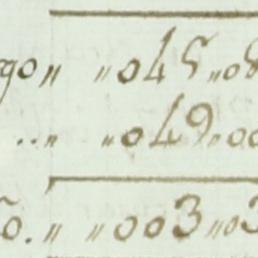 go,, ,,045,,08
..,, ,,049,,00
o.,, ,,003,,03